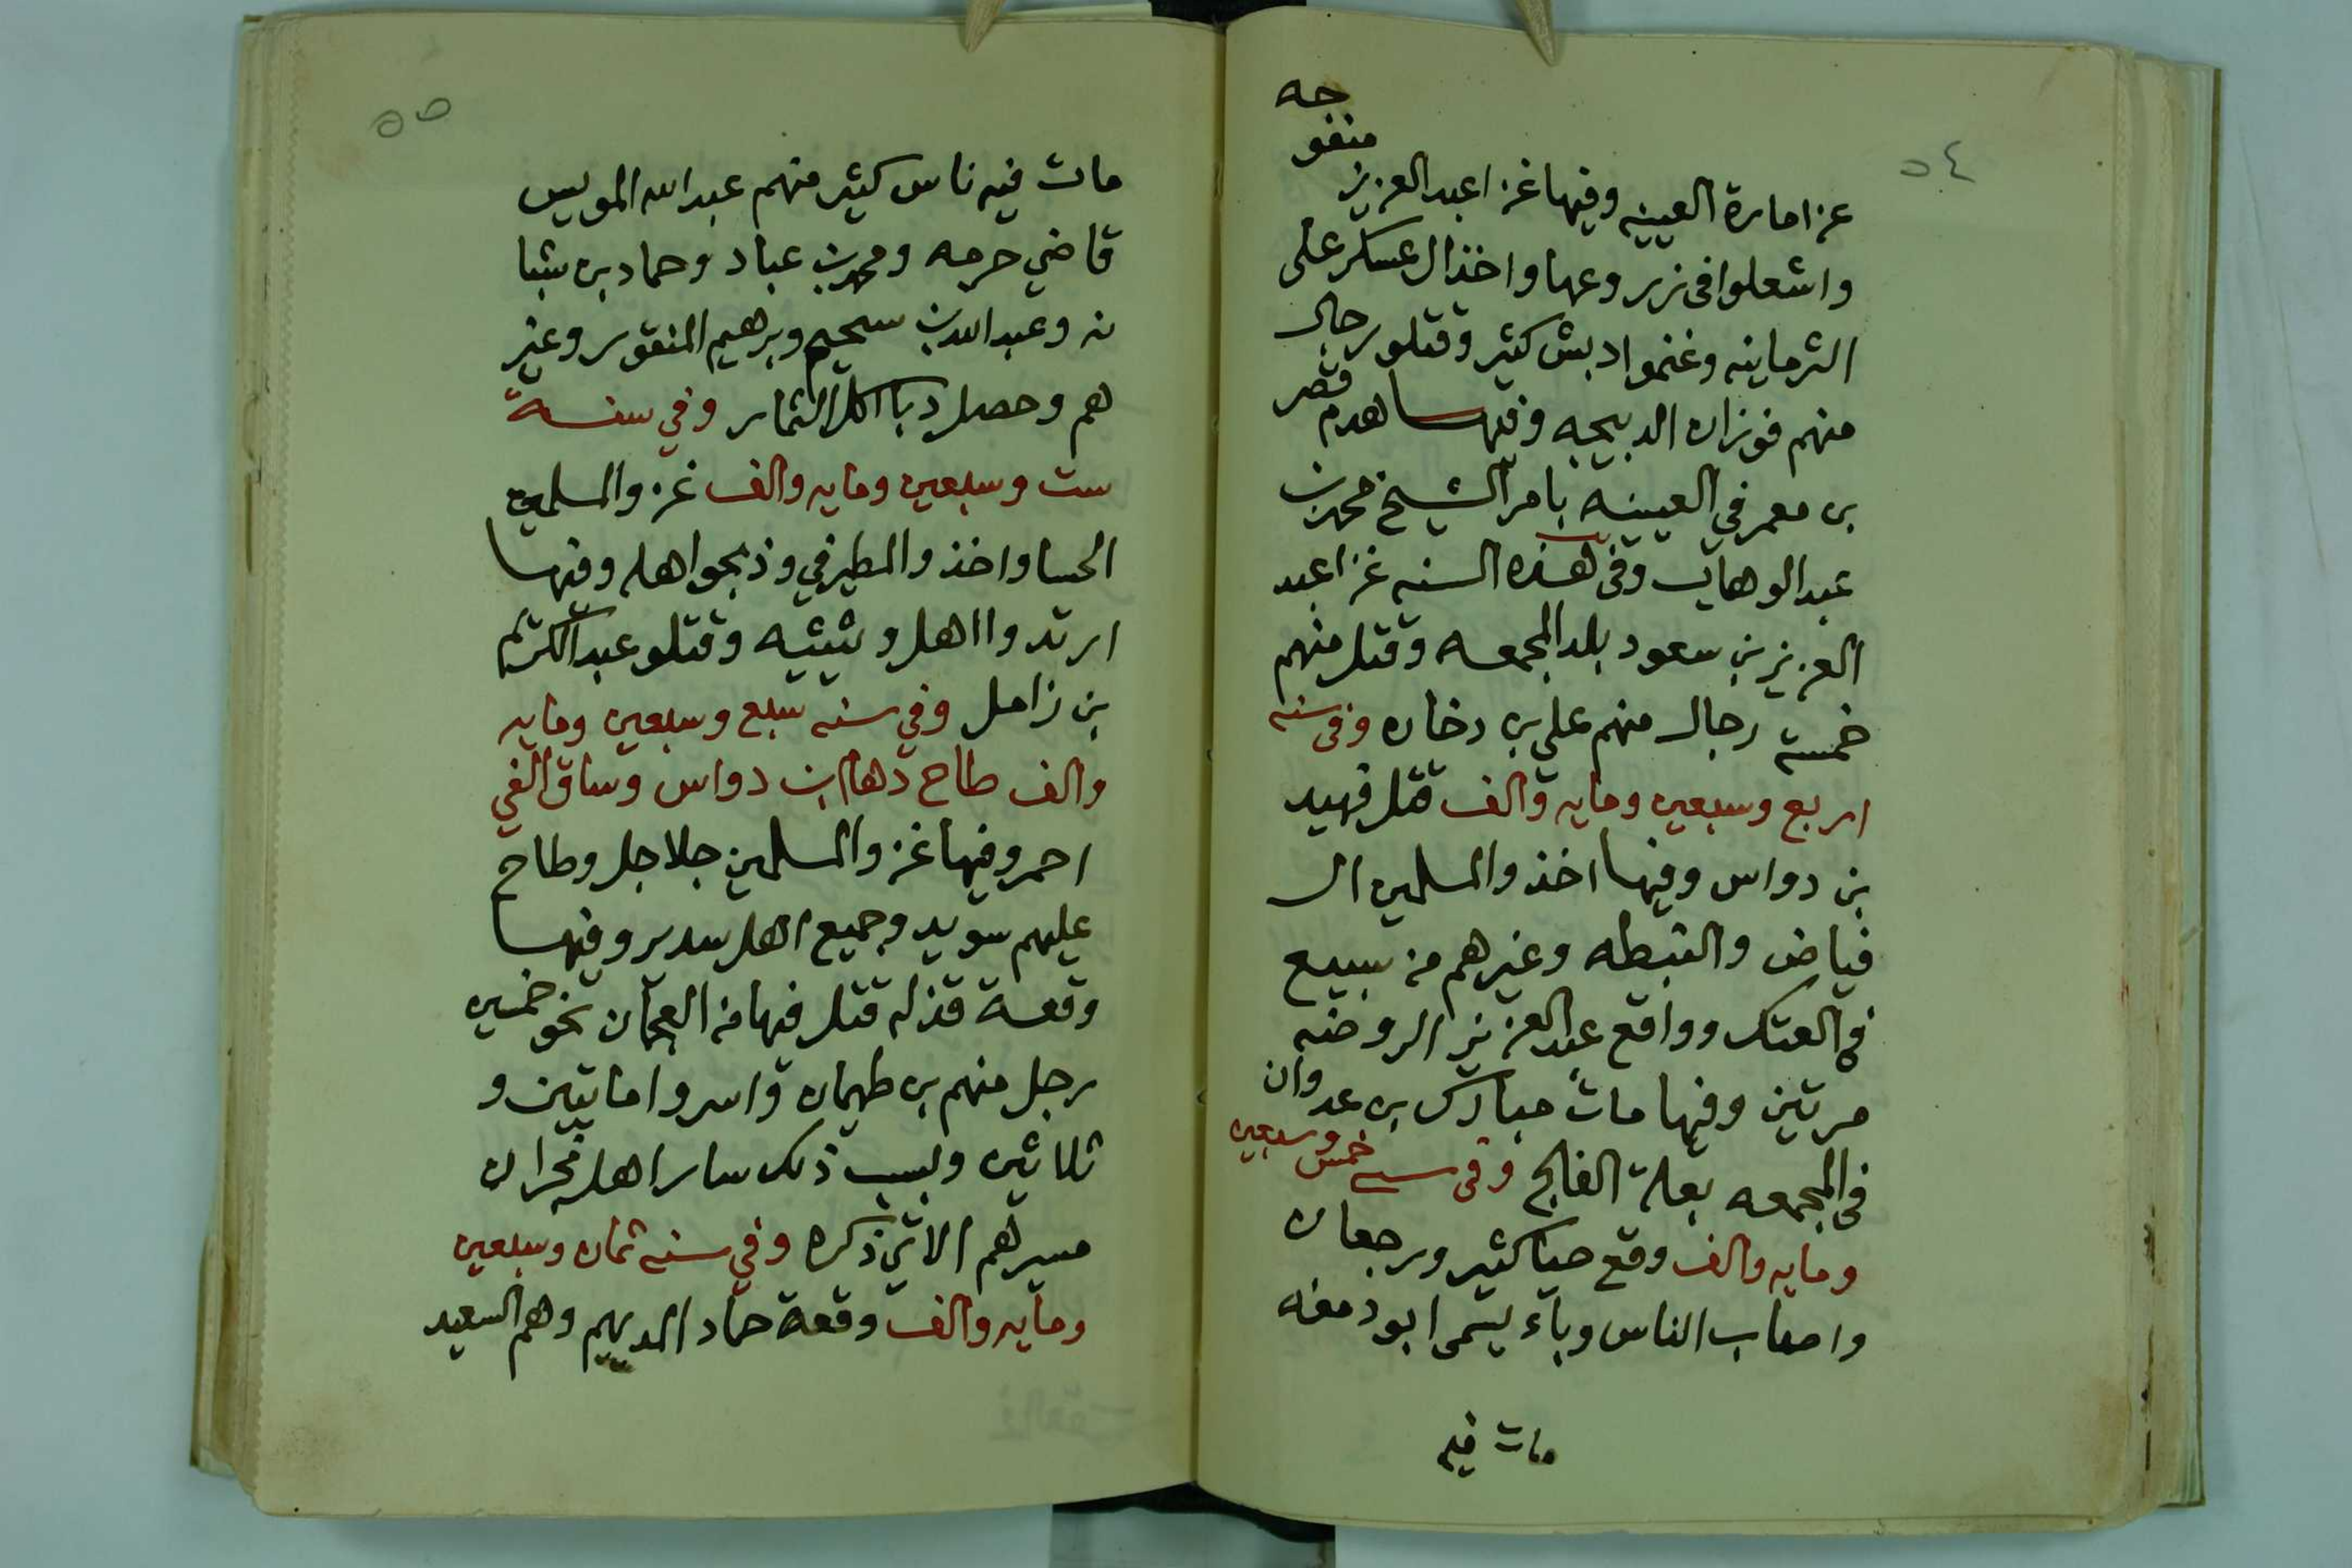 ٥٤
عن امارة العيينه وفيها غزا عبد العزيز منفوحه
واشعلوا في زروعها واخذ ال عسكر على
الثرمانيه وغنموا دبش كثير وقتلو رجال
منهم فوزان الدبيجه وفيها هدم قصر
بن معمر في العيينه بامر الشيخ محمد بن
عبد الوهاب وفي هذه السنه غزا عبد
العزيز بن سعود بلد المجمعه وقتل منهم
خمسة رجال منهم علي بن دخان وفي سنه
اربع وسبعين ومايه والف قتل فهيد
بن دواس وفيها اخذ والمسلمين ال
فياض والنبطه وغيرهم من سبيع
في العتك وواقع عبد العزيز الروضه
مرتين وفيها مات مبارك بن عدوان
في المجمعه بعلة الفالج وفي سنه خمس وسبعين
ومايه والف وقع حيا كثير ورجعان
واصاب الناس وباء يسمى ابو دمغه
مات فيه
٥٥
مات فيه ناس كثير منهم عبد الله المويس
قاضي حرمه ومحمد بن عباد وحماد بن شبا
نه وعبد الله بن سحيم وبرهيم المنقور وغير
هم وحصل دبا اكل الثمار وفي سنة
ست وسبعين ومايه والف غزو المسلمين
الحسا واخذ والمطيرفي وذبحوا اهله وفيها
ارتد وااهل وثيثيه وقتلو عبد الكريم
بن زامل وفي سنه سبع وسبعين ومايه
والف طاح دهام بن دواس وساق الفي
احمر وفيها غزو المسلمين جلاجل وطاح
عليهم سويد وجميع اهل سدير وفيها
وقعة قذله قتل فيها من العجمان نحو خمسين
رجل منهم بن طهمان واسروا مايتين و
ثلاثين وبسبب ذلك سار اهل نجران
مسيرهم الاتي ذكره وفي سنه ثمان وسبعين
ومايه والف وقعة حماد المديهيم وهم السعيد